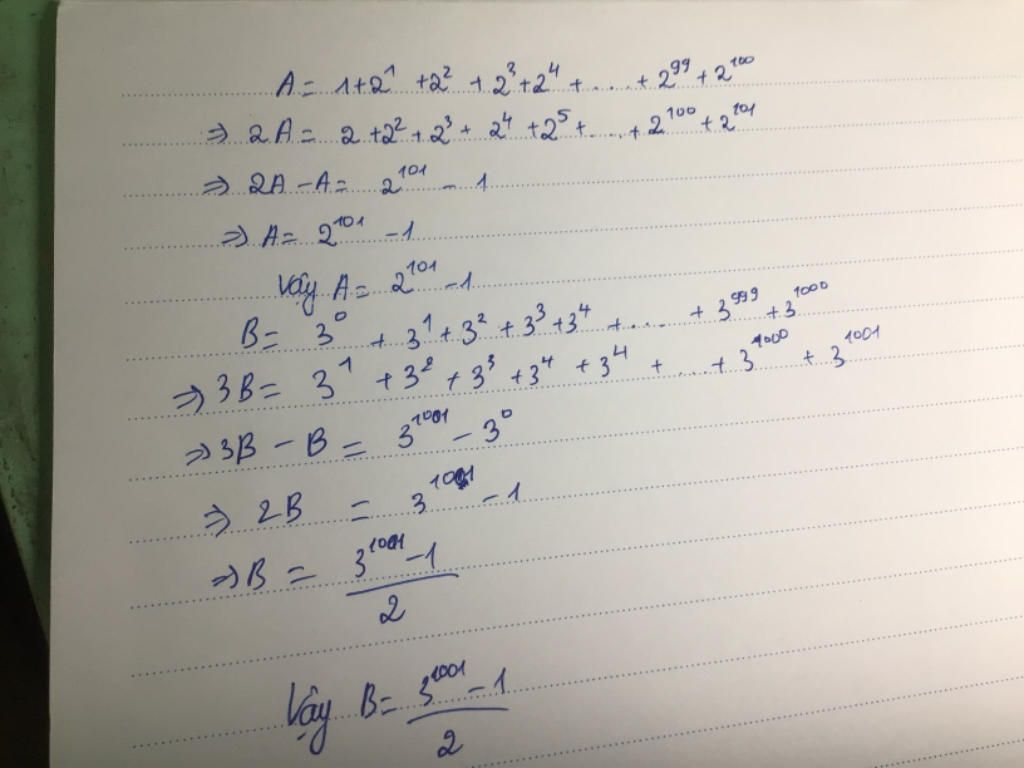 A = 1 + 2^1 + 2^2 + 2^3 + 2^4 + .... + 2^99 + 2^100
⇒ 2A = 2 + 2^2 + 2^3 + 2^4 + 2^5 + .... + 2^100 + 2^101
⇒ 2A - A = 2^101 - 1
⇒ A = 2^101 - 1
Vậy A = 2^101 - 1
B = 3^0 + 3^1 + 3^2 + 3^3 + 3^4 + .... + 3^999 + 3^1000
⇒ 3B = 3^1 + 3^2 + 3^3 + 3^4 + 3^4 + ... + 3^1000 + 3^1001
⇒ 3B - B = 3^1001 - 3^0
⇒ 2B = 3^1001 - 1
⇒ B = (3^1001 - 1)/2
Vậy B = (3^1001 - 1)/2